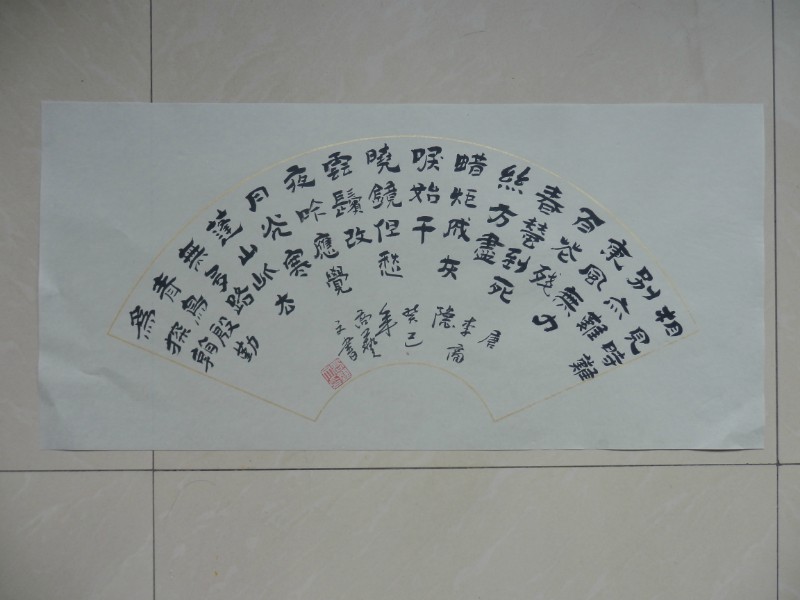 相見時難
别亦難
東風無力
百花残
春蠶到死
絲方盡
蜡炬成灰
唳始干
曉鏡但愁
雲鬢改
夜吟應覺
月光寒
蓬山此去
無多路
青鳥殷勤
為探翰
唐
李商
隱
癸巳
年
高藝
書